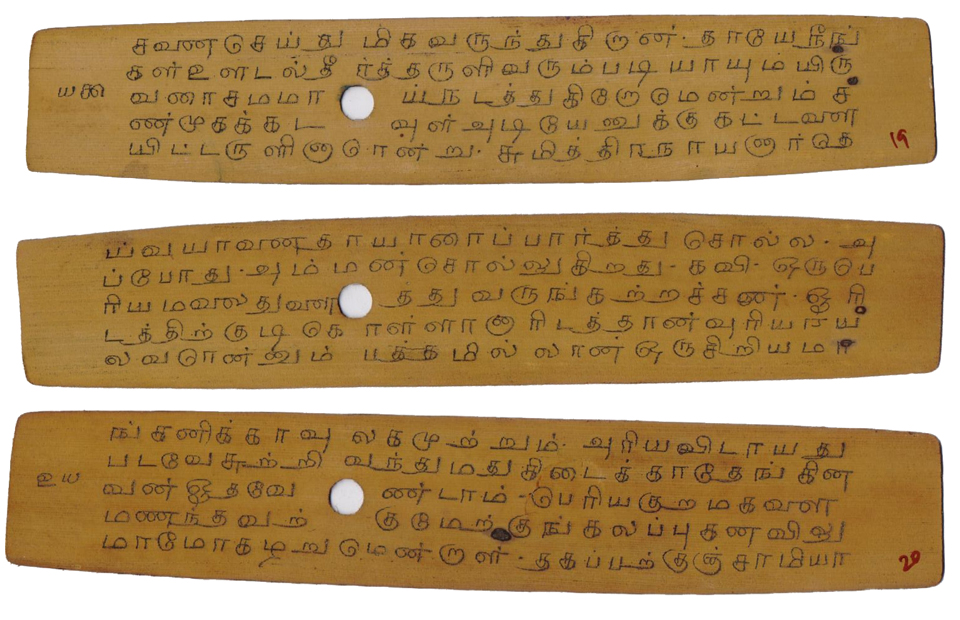 சவணசெய்து மிகவருந்துகிறான். தாயேநீங்
கள்உளடல்தீர்த்தருளிவரும்படியாயும் யிரு
யகூ
வணாசமமா ய் நடத்துகிறேமென்றும் ச
ண்முகக்கட வுள்அடியேனுக்கு கட்டளை
யிட்டருளினான்று. சுமித்திரநாயனார்தெ
19
ய்வயாவனதாயாரைப்பார்த்து சொல்ல. அ
ப்போது. அம்மண்சொல்லுகிறது. கவி. ஒருபெ
ரியமலை துவளை த்துவருங்கற்றச்சன். ஓரி
டத்திற்குடிகொள்ளானரிடத்தான்
லவனான்னும் பக்கமில்லான்ஒருசிறியமா
ங்கனிக்காவுலகமுற்றும். அரியவிடாயது
படவேசுற்றி வந்துமதுகிடைக்காதேங்கின
உய
வன்இதவே ண்டாம். பெரியகுறமகளை
மணந்தவற் குமேற்குங்கலப்புகனவிலு
மாமோகழறுமென்றாள். தகப்பற்குஞ்சாமியா
20